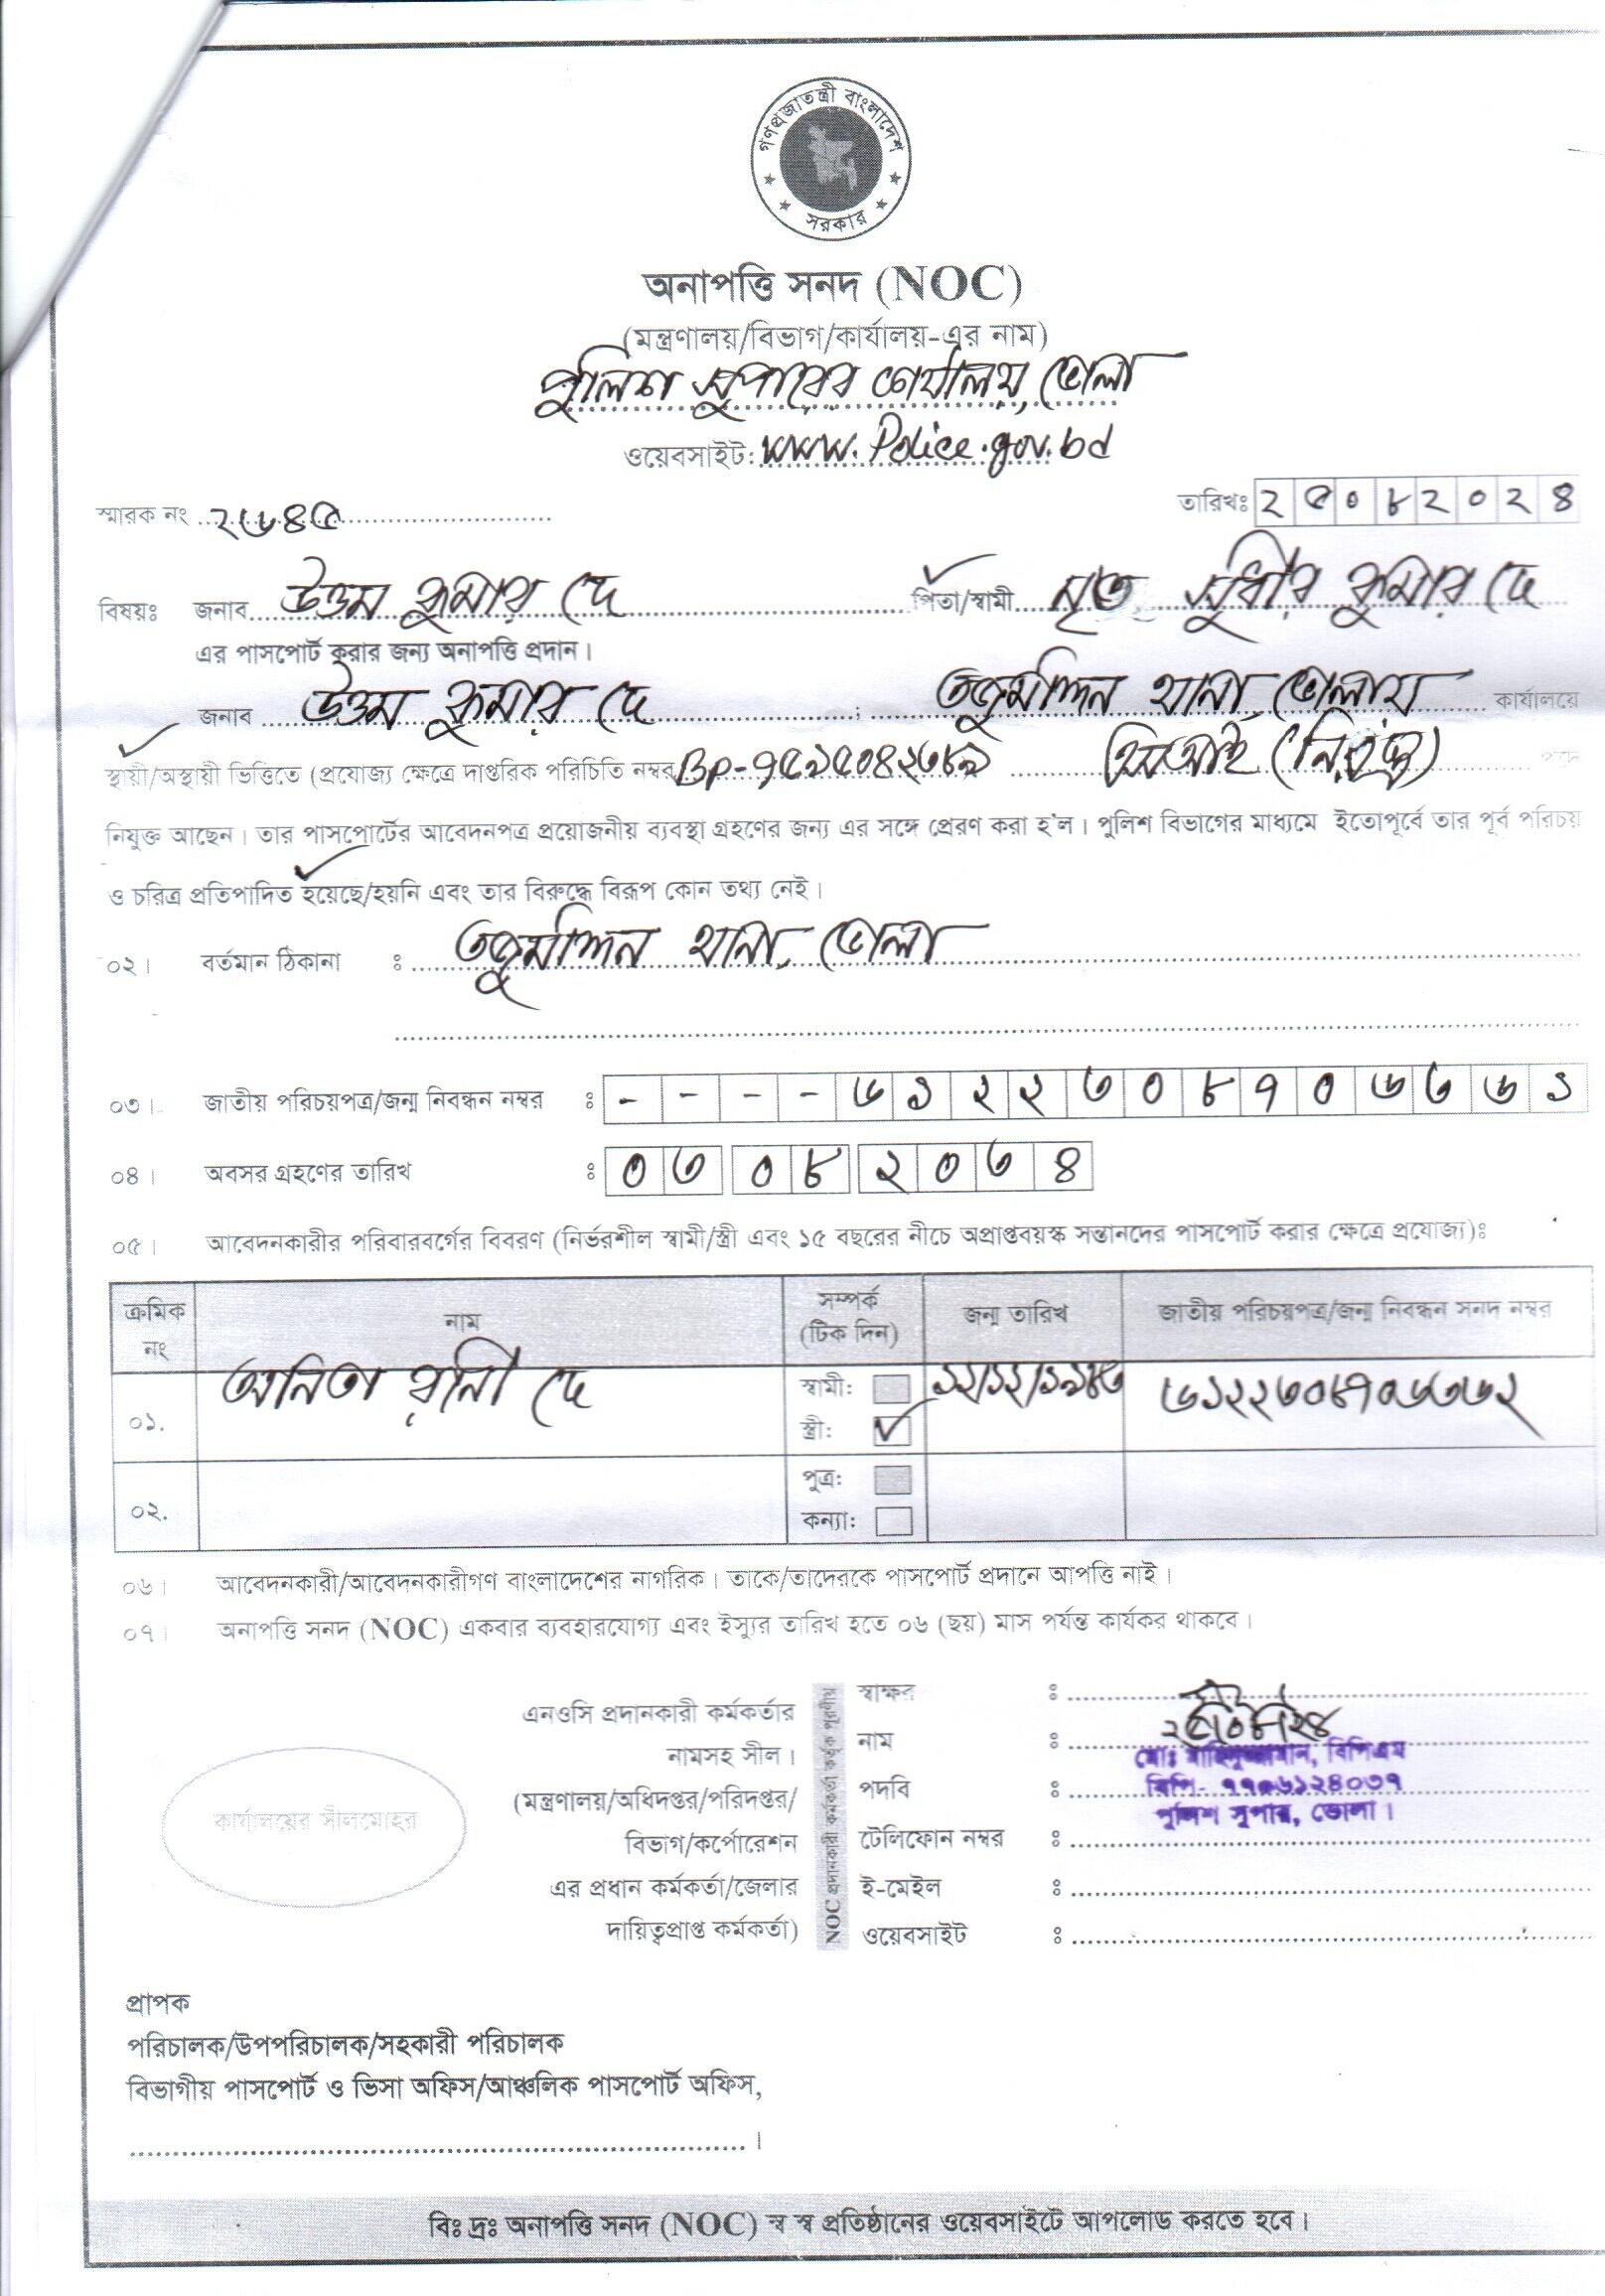 গণপ্রজাতন্ত্রী বাংলাদেশ
সরকার
অনাপত্তি সনদ (NOC)
(মন্ত্রণালয়/বিভাগ/কার্যালয়-এর নাম)
পুলিশ সুপারের কার্যালয়, ভোলা
ওয়েবসাইট: www.Police.gov.bd
স্মারক নং ২৬৪৫ তারিখঃ ২৫০৮২০২৪
বিষয়ঃ জনাব উত্তম কুমার দে পিতা/স্বামী মৃত সুধীর কুমার দে
এর পাসপোর্ট করার জন্য অনাপত্তি প্রদান।
জনাব উত্তম কুমার দে ; তজুমদ্দিন থানা, ভোলায় কার্যালয়ে
স্থায়ী/অস্থায়ী ভিত্তিতে (প্রযোজ্য ক্ষেত্রে দাপ্তরিক পরিচিতি নম্বর BP-৭৫৯৫০৪২৩৮৯ এসআই (নিরস্ত্র) পদে
নিযুক্ত আছেন। তার পাসপোর্টের আবেদনপত্র প্রয়োজনীয় ব্যবস্থা গ্রহণের জন্য এর সঙ্গে প্রেরণ করা হ'ল। পুলিশ বিভাগের মাধ্যমে ইতোপূর্বে তার পূর্ব পরিচয়
ও চরিত্র প্রতিপাদিত হয়েছে/হয়নি এবং তার বিরুদ্ধে বিরূপ কোন তথ্য নেই।
০২। বর্তমান ঠিকানা ঃ তজুমদ্দিন থানা, ভোলা
০৩। জাতীয় পরিচয়পত্র/জন্ম নিবন্ধন নম্বর ঃ - - - - ৬১২২৩০৮৭০৬৩৬১
০৪। অবসর গ্রহণের তারিখ ঃ ০৩ ০৮ ২০৩৪
০৫। আবেদনকারীর পরিবারবর্গের বিবরণ (নির্ভরশীল স্বামী/স্ত্রী এবং ১৫ বছরের নীচে অপ্রাপ্তবয়স্ক সন্তানদের পাসপোর্ট করার ক্ষেত্রে প্রযোজ্য)ঃ
ক্রমিক নং নাম সম্পর্ক (টিক দিন) জন্ম তারিখ জাতীয় পরিচয়পত্র/জন্ম নিবন্ধন সনদ নম্বর
০১. অনিতা রানী দে স্বামী: ১২/১২/১৯৮৩ ৬১২২৩০৮৭০৬৩৬২
স্ত্রী: ✓
০২. পুত্র:
কন্যা:
০৬। আবেদনকারী/আবেদনকারীগণ বাংলাদেশের নাগরিক। তাকে/তাদেরকে পাসপোর্ট প্রদানে আপত্তি নাই।
০৭। অনাপত্তি সনদ (NOC) একবার ব্যবহারযোগ্য এবং ইস্যুর তারিখ হতে ০৬ (ছয়) মাস পর্যন্ত কার্যকর থাকবে।
কার্যালয়ের সীলমোহর
এনওসি প্রদানকারী কর্মকর্তার
নামসহ সীল।
(মন্ত্রণালয়/অধিদপ্তর/পরিদপ্তর/
বিভাগ/কর্পোরেশন
এর প্রধান কর্মকর্তা/জেলার
দায়িত্বপ্রাপ্ত কর্মকর্তা)
NOC প্রদানকারী কর্মকর্তা কর্তৃক পূরণীয়
স্বাক্ষর ঃ
২৫/০৮/২৪
নাম ঃ মোঃ বিপিএম
পদবি ঃ বিপি- ৭৭০৬১২৪০৩৭
পুলিশ সুপার, ভোলা।
টেলিফোন নম্বর ঃ
ই-মেইল ঃ
ওয়েবসাইট ঃ
প্রাপক
পরিচালক/উপপরিচালক/সহকারী পরিচালক
বিভাগীয় পাসপোর্ট ও ভিসা অফিস/আঞ্চলিক পাসপোর্ট অফিস,
।
বিঃ দ্রঃ অনাপত্তি সনদ (NOC) স্ব স্ব প্রতিষ্ঠানের ওয়েবসাইটে আপলোড করতে হবে।